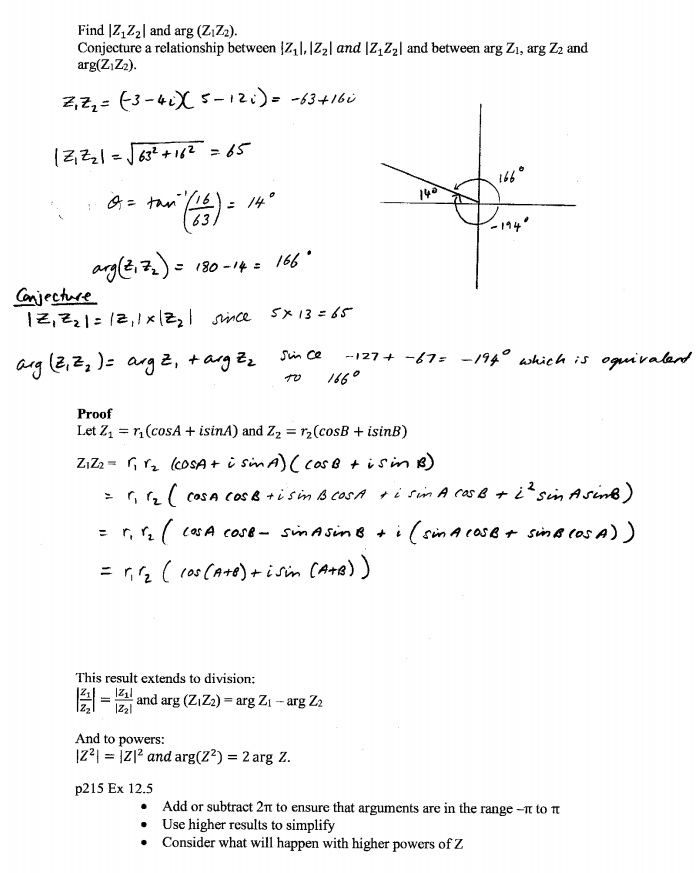 Find |Z₁Z₂| and arg (Z₁Z₂).
Conjecture a relationship between |Z₁|, |Z₂| and |Z₁Z₂| and between arg Z₁, arg Z₂ and
arg(Z₁Z₂).
Z₁Z₂ = (-3-4i)(5-12i) = -63+16i
|Z₁Z₂| = √(63² + 16²) = 65
θ = tan⁻¹(16/63) = 14°
166°
14°
-194°
arg(Z₁Z₂) = 180-14 = 166°
Conjecture
|Z₁Z₂| = |Z₁| x |Z₂| since 5 x 13 = 65
arg(Z₁Z₂) = arg Z₁ + arg Z₂ since -127 + -67 = -194° which is equivalent
to 166°
Proof
Let Z₁ = r₁(cosA + isinA) and Z₂ = r₂(cosB + isinB)
Z₁Z₂ = r₁ r₂ (cosA + i sinA)(cosB + i sin B)
= r₁ r₂ (cosA cosB + i sin B cosA + i sin A cosB + i² sinA sinB)
= r₁ r₂ (cosA cosB - sinA sinB + i (sinA cosB + sinB cosA))
= r₁ r₂ (cos(A+B) + i sin(A+B))
This result extends to division:
|Z₁/Z₂| = |Z₁|/|Z₂| and arg (Z₁Z₂) = arg Z₁ – arg Z₂
And to powers:
|Z²| = |Z|² and arg(Z²) = 2 arg Z.
p215 Ex 12.5
• Add or subtract 2π to ensure that arguments are in the range –π to π
• Use higher results to simplify
• Consider what will happen with higher powers of Z